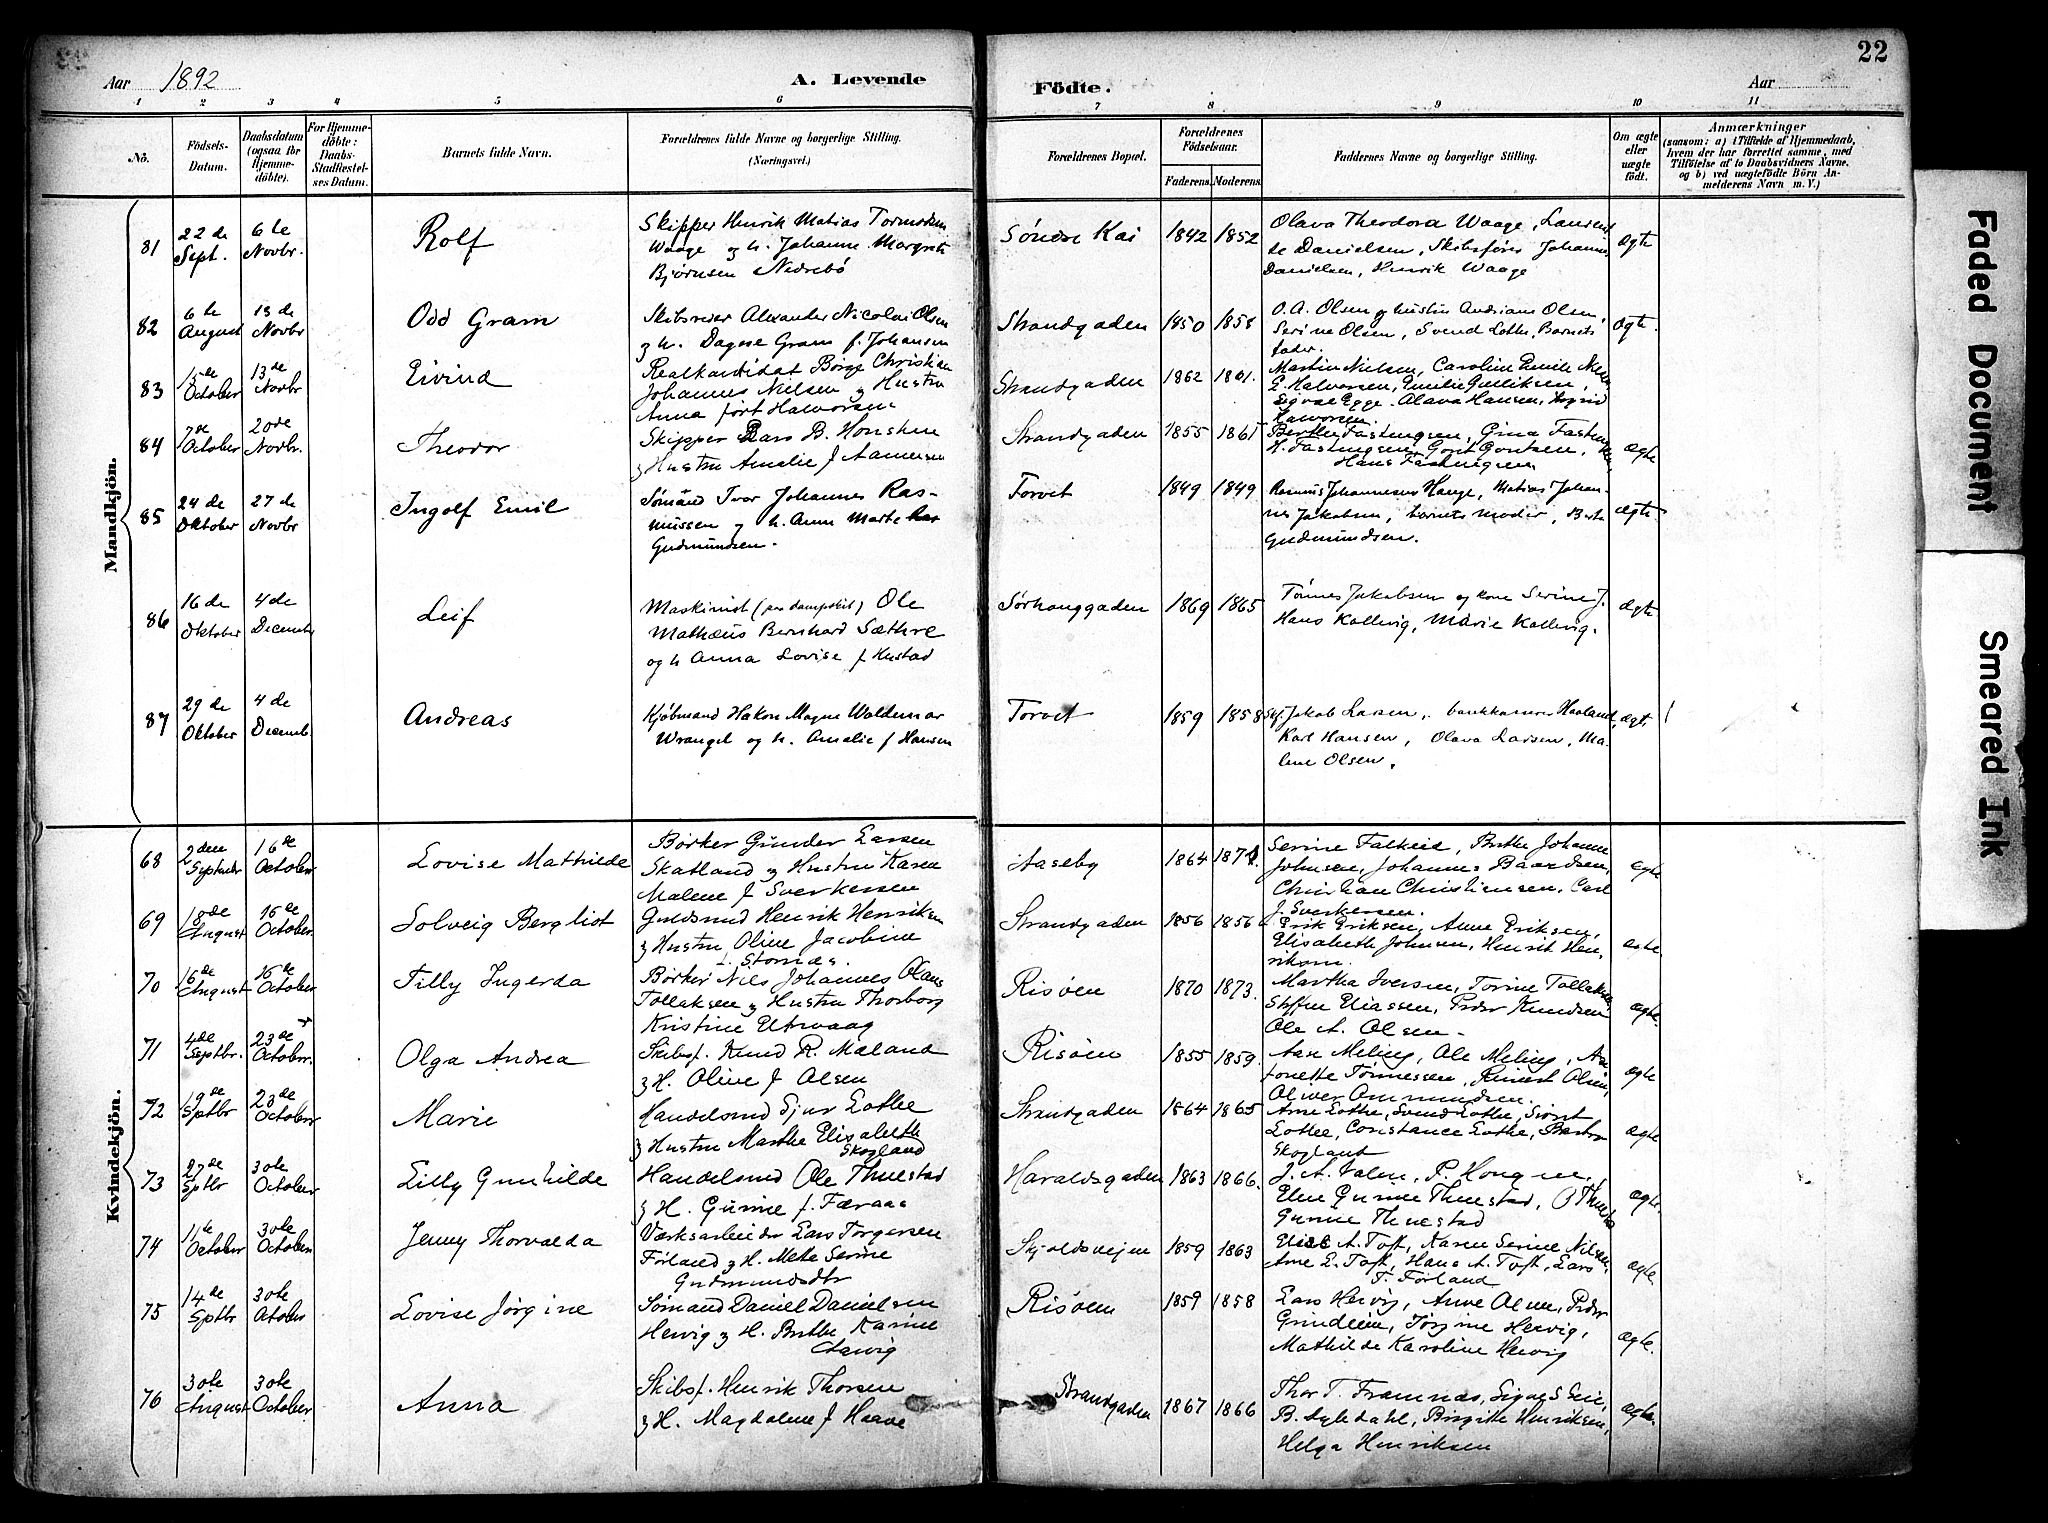 22
Aar 1892
A. Levende
Födte.
Aar
1 2 3 4 5 6 7 8 9 10 11
No.
Födsels-
Datum.
Daabsdatum
(ogsaa for
Hjemme-
döbte).
For Hjemme-
döbte:
Daabs-
Stadfestel-
ses Datum.
Barnets fulde Navn.
Forældrenes fulde Navne og borgerlige Stilling.
(Næringsvei.)
Forældrenes Bopæl.
Forældrenes
Födselsaar.
Faderens. Moderens.
Faddernes Navne og borgerlige Stilling.
Om ægte
eller
uægte
födt.
Anmærkninger
(saasom: a) i Tilfælde af Hjemmedaab,
hvem der har forrettet samme, med
Tilföielse af to Daabsvidners Navne,
og b) ved uægtefödte Börn An-
melderens Navn m. V.)
Mandkjön.
81
22 de
Sept.
6 te
Novbr.
Rolf
Skipper Henrik Matias Tormodsen
Waage og h. Johanne Margrete
Bjørnsen Nedrebø
Søndre Kai
1842 1852
Olava Theodora Waage,
Danielsen, Skibsfører Johannes
Danielsen, Henrik Waage
ægte
82
6 te
August
13 de
Novbr
Odd Gram
Skibsreder Alexander Nicolai Olsen
og h. Dagne Gram f. Johansen
Strandgaden
1850 1858
O. A. Olsen og hustru Andriane Olsen,
Serine Olsen, Svend Lothe, Barnets
fader.
ægte.
83
October
13 de
Novbr
Eivind
Realkandidat Børge Christian
Johannes Nielsen og Hustru
Anna født Halvorsen
Strandgaden
1862 1861.
Martin Nielsen, Caroline Emilie
E. Halvorsen, Emilie Gulliksen,
Sigvæ Egge. Olava Hansen, Sigrid
Halvorsen.
84
7 de
October
20 de
Novbr.
Theodor
Skipper Lars B. Honshen
og Hustru Amalie f Aamensen
Strandgaden
1855 1861
Berthe Fastengsen, Gina
H. Fastengsen, Gont Gontsen,
Hans Fastengsen
ægte
85
24 de
Oktober
27 de
Novbr
Ingolf Emil
Sømand Ivar Johannes Ras-
mussen og h. Anne Marte
Gudmundsen.
Torvet
1849 1849
Rasmus Johannesen Hauge, Matias Johan-
nes Jakobsen, barnets moder, Berte
Gudmundsen.
ægte.
86
16 de
Oktober
4 de
December
Leif
Maskinist (paa dampskib) Ole
Mathæus Bernhard Sæthre
og h Anna Lovise f Hustad
Sørhauggaden
1869 1865
Tønnes Jakobsen og kone Serine J.
Hans Kallevig, Marie Kallevig.
ægte
87
29 de
Oktober
4 de
Decemb.
Andreas
Kjøbmand Hakon Magne Waldemar
Wrangel og h. Amalie f Hansen
Torvet
1859 1858
Jakob Larsen, bankkasserer Haaland,
Karl Hansen, Olava Larsen, Ma-
lene Olsen.
ægte.
Kvindekjön.
68
2 den
September
16 de
October
Lovise Mathilde
Børker Gunder Larsen
Skatland og Hustru Karen
Malene f Sverkersen
Aaseby
1864 1871.
Serine Falkeid, Berthe Johanne
Johnsen, Johannes Baardsen,
Christian Christiansen, Carl
J. Sverkersen.
ægte
69
18 de
August
16 de
October.
Solveig Bergliot
Guldsmed Henrik Henriksen
og Hustru Oline Jacobine
f. Stornæs.
Strandgaden
1856 1856
Erik Eriksen, Anne Eriksen,
Elisabeth Johnsen, Henrik Hen-
riksen.
ægte.
70
16 de
August
16 de
October
Tilly Ingerda
Børker Nils Johannes Olaus
Tollaksen og Hustru Thorborg
Kristine Utvaag
Risøen
1870 1873.
Martha Iversen, Torine Tollaksen,
Steffen Eliassen, Peder Knudsen
Ole A. Olsen.
ægte.
71
4 de
Septbr.
23 de
October.
Olga Andrea
Skibsf. Knud R. Mæland
og H. Olive f Olsen
Risøen
1855 1859.
Aase Meling, Ole Meling,
Tønnessen, Reinert Olsen,
Oliver Ommundsen.
ægte
72
19 de
Septbr
23 de
October
Marie
Handelsmd Sjur Lothe
og Hustru Marthe Elisabeth
Skogland
Strandgaden
1864 1865
Arne Lothe, Svend Lothe, Siont
Lothe, Constance Lothe, Berta
Skogland
ægte
73
27 de
Sptbr
30 te
October
Lilly Gunhilde
Handelsmd Ole Thuestad
og H. Gurine f. Færaas
Haraldsgaden
1863 1866.
J. A. Valen, P. Hougne,
Eline Gurine Thuestad, O Thuestad
Gurine Thuestad
ægte.
74
11 te
October
30 te
October
Jenny Thorvalda
Værksarbeider Lars Torgersen
Førland og H. Mette Serine
Gudmundsdtr
Skjoldsveien
1859 1863
Elise A. Toft, Karen Serine Nilsen,
Arne E. Toft, Hans A. Toft, Lars
T. Førland
ægte.
75
14 de
Sptbr
30 te
October
Lovise Jørgine
Sømand Daniel Danielsen
Hervig og H. Berthe Karine
Risøen
1859 1858
Lars Hervig, Anne Olsen, Peder
Grindheim, Jørgine Hervig,
Mathilde Karoline Hervig
ægte.
76
30 te
August
30 te
October
Anna
Skibsf. Henrik Thorsen
og H. Magdalene f Haave
Strandgaden
1867 1866
Thor T. Framnæs, Signe S Eeie,
B. Dyledahl, Birgitte Henriksen,
Helga Henriksen
ægte.
Faded Document
Smeared Ink